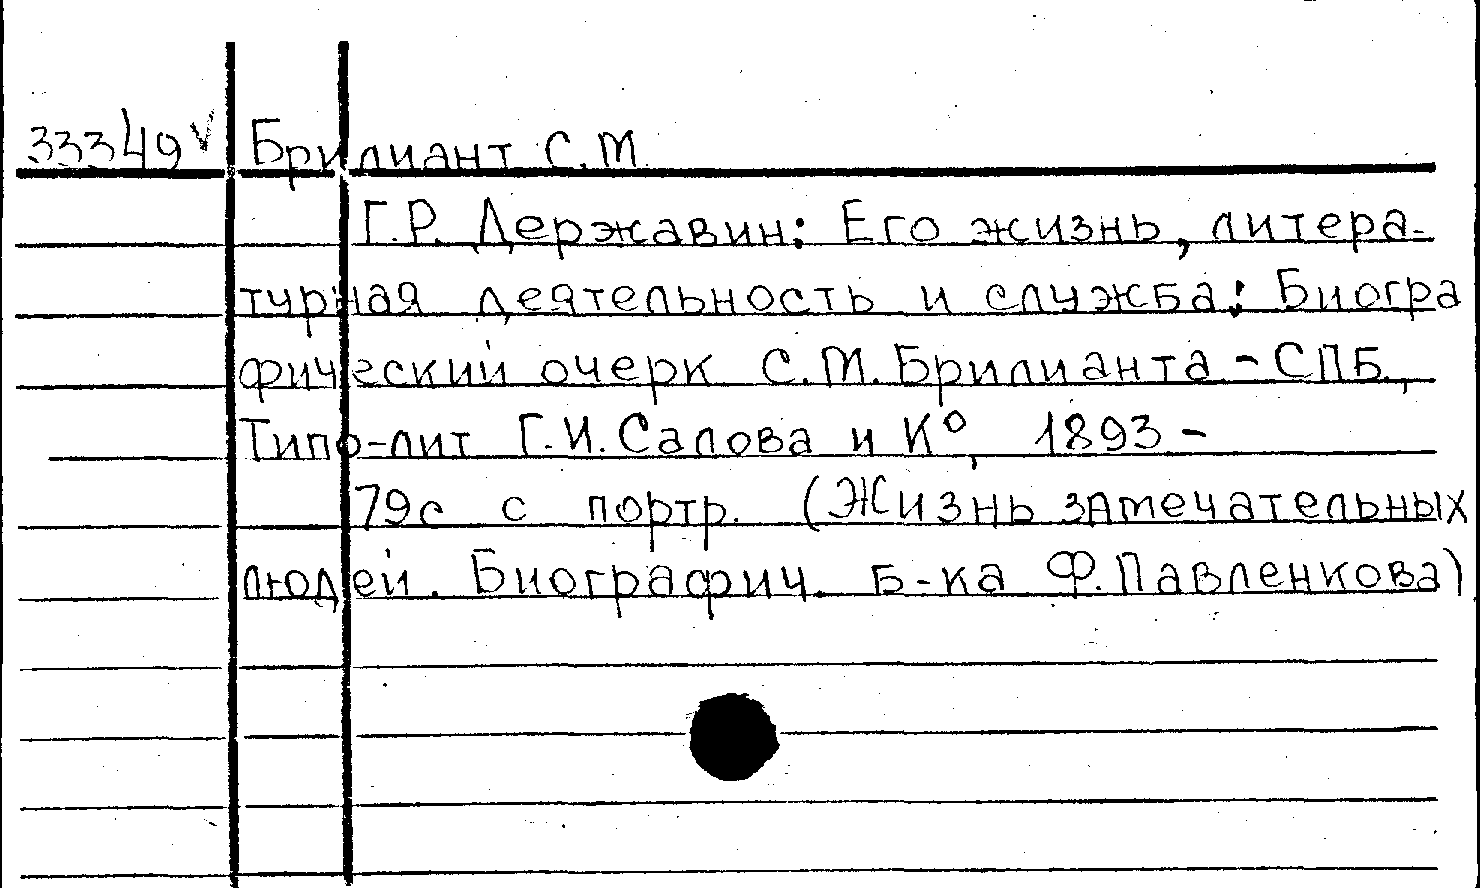 33349 √ Брилиант С.М.
Г.Р. Державин: Его жизнь, литера-
турная деятельность и служба: Биогра
фический очерк С.М. Брилианта - СПБ.,
Типо-лит Г.И. Салова и Кº, 1893 -
79с с портр. (Жизнь замечательных
людей. Биографич. Б-ка Ф. Павленкова)